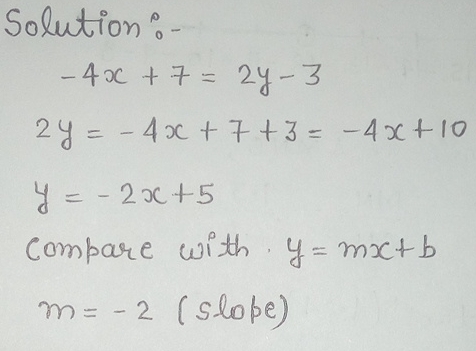 Solution :-
-4x + 7 = 2y - 3
2y = -4x + 7 + 3 = -4x + 10
y = -2x + 5
Compare with. y = mx + b
m = -2 (slope)